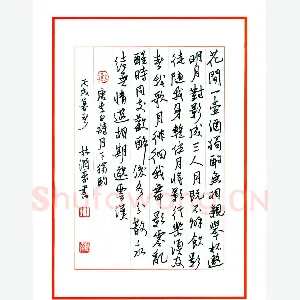 花間一壺酒獨酌無相親舉杯邀
明月對影成三人月既解飲影
徒隨我身暫伴月將影行樂須及
春我歌月徘徊我舞影零亂
醒時同交歡醉後各分散永
結無情遊相期邈雲漢
唐李白詩月下獨酌
書